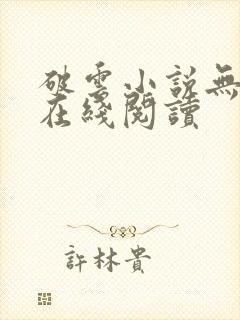 破雲小說無
在綫閱讀
許林貴